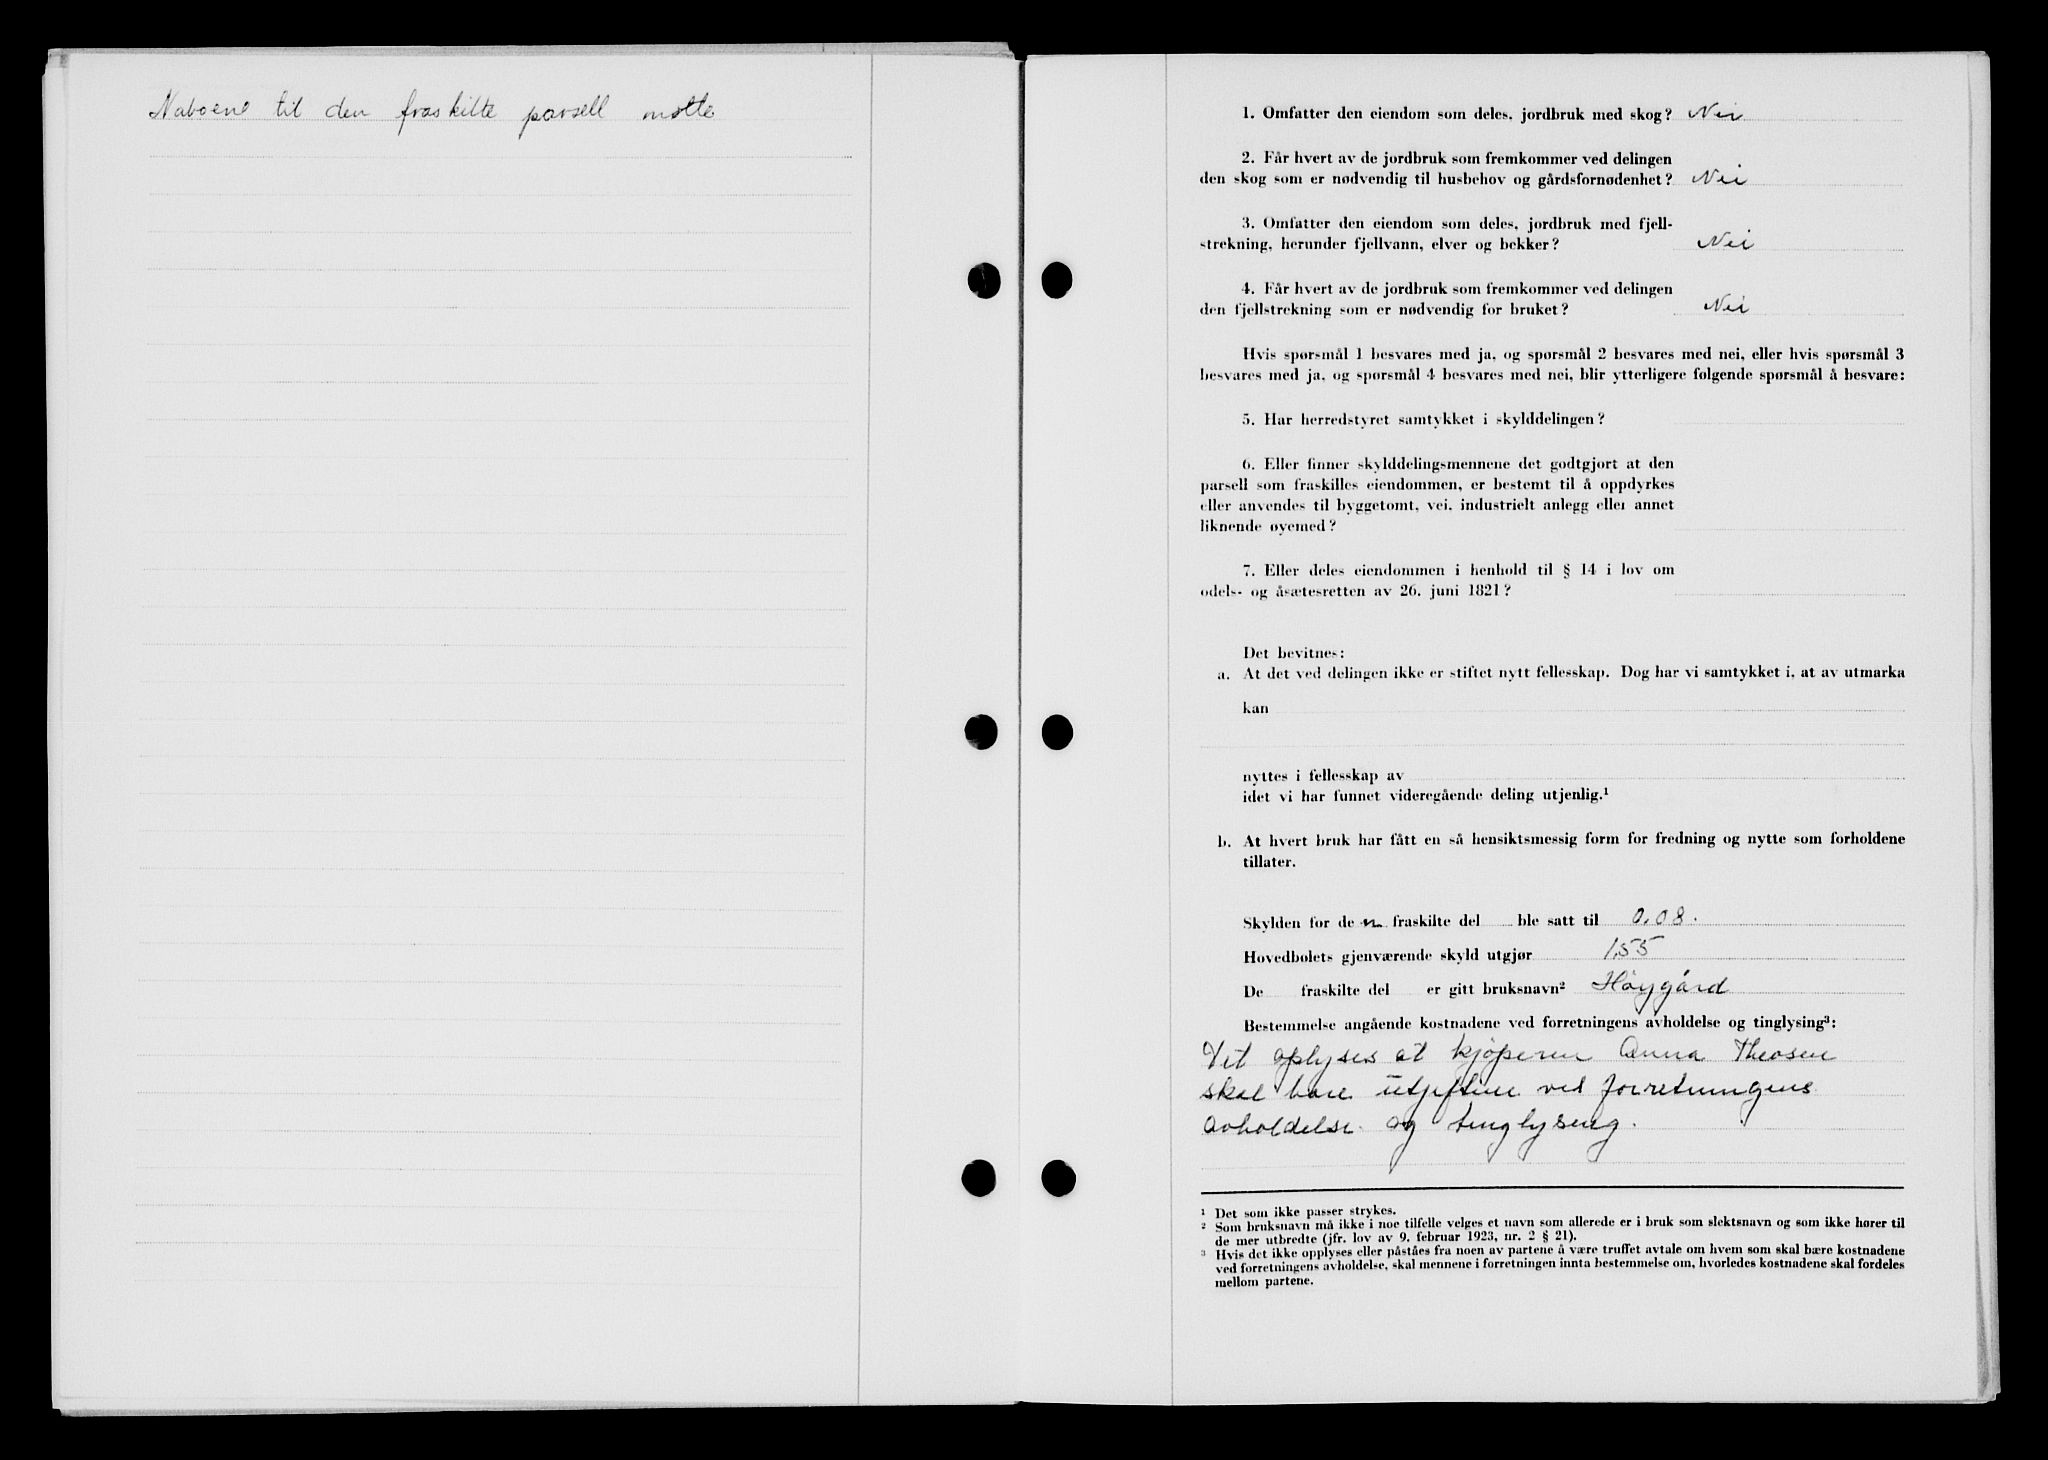 Naboene til den fraskilte parsell møtte
1. Omfatter den eiendom som deles, jordbruk med skog? Nei
2. Får hvert av de jordbruk som fremkommer ved delingen
den skog som er nødvendig til husbehov og gårdsfornødenhet? Nei
3. Omfatter den eiendom som deles, jordbruk med fjell-
strekning, herunder fjellvann, elver og bekker? Nei
4. Får hvert av de jordbruk som fremkommer ved delingen
den fjellstrekning som er nødvendig for bruket? Nei
Hvis spørsmål 1 besvares med ja, og spørsmål 2 besvares med nei, eller hvis spørsmål 3
besvares med ja, og spørsmål 4 besvares med nei, blir ytterligere følgende spørsmål å besvare:
5. Har herredstyret samtykket i skylddelingen?
6. Eller finner skylddelingsmennene det godtgjort at den
parsell som fraskilles eiendommen, er bestemt til å oppdyrkes
eller anvendes til byggetomt, vei, industrielt anlegg eller annet
liknende øyemed?
7. Eller deles eiendommen i henhold til § 14 i lov om
odels- og åsætesretten av 26. juni 1821?
Det bevitnes:
a. At det ved delingen ikke er stiftet nytt fellesskap. Dog har vi samtykket i, at av utmarka
kan
nyttes i fellesskap av
idet vi har funnet videregående deling utjenlig.¹
b. At hvert bruk har fått en så hensiktsmessig form for fredning og nytte som forholdene
tillater.
Skylden for de n fraskilte del ble satt til 0.08.
Hovedbølets gjenværende skyld utgjør 1,55
De fraskilte del er gitt bruksnavn² Høygård
Bestemmelse angående kostnadene ved forretningens avholdelse og tinglysing³:
Det oplyses at kjøperen Anna Theosen
skal bære utgiftene ved forretningens
avholdelse og tinglysing.
¹ Det som ikke passer strykes.
² Som bruksnavn må ikke i noe tilfelle velges et navn som allerede er i bruk som slektsnavn og som ikke hører til
de mer utbredte (jfr. lov av 9. februar 1923, nr. 2 § 21).
³ Hvis det ikke opplyses eller påståes fra noen av partene å være truffet avtale om hvem som skal bære kostnadene
ved forretningens avholdelse, skal mennene i forretningen innta bestemmelse om, hvorledes kostnadene skal fordeles
mellom partene.